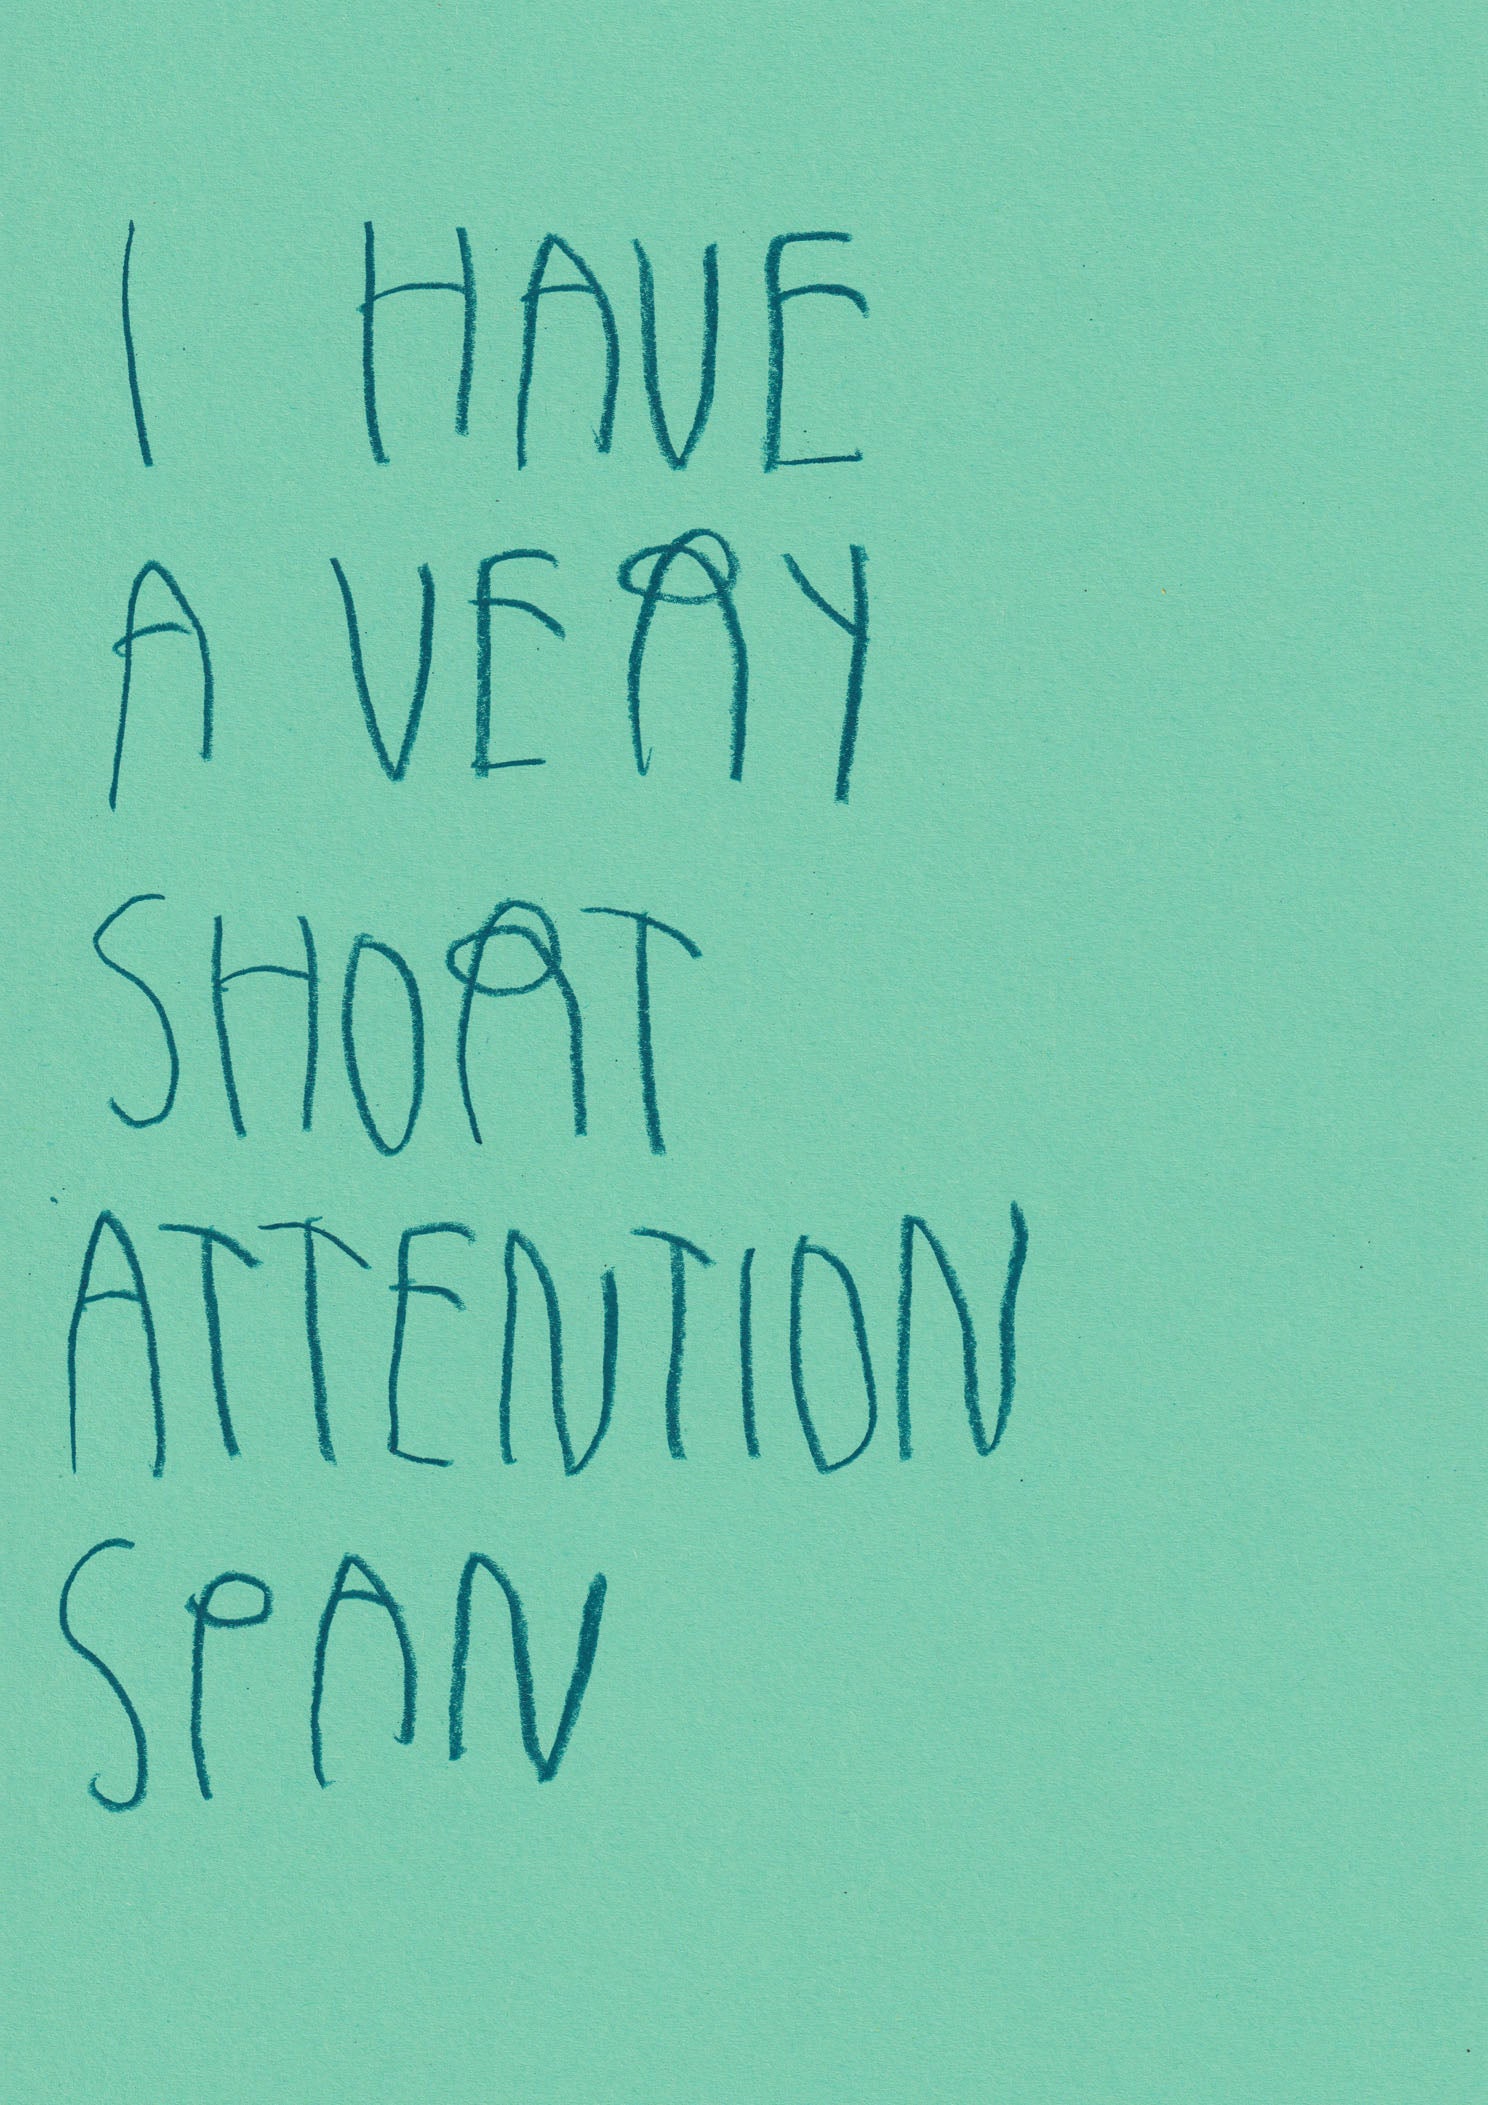 I HAVE
A VERY
SHORT
ATTENTION
SPAN